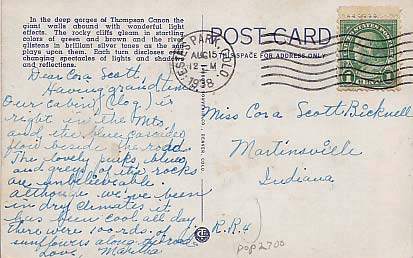 In the deep gorges of Thompson Canon the
giant walls abound with wonderful light
effects. The rocky cliffs gleam in startling
colors of green and brown and the river
glistens in brilliant silver tones as the sun
plays upon them. Each turn discloses the
changing spectacles of lights and shadows
and reflections.
Dear Cora Scott,
Having grand time.
Our cabin (log) is
right in the Mts.
and the blue cascades
flow beside the road.
The lovely pinks, blues,
and greys of the rocks
are unbelievable.
Although we've been
in dry climates it
has been cool all day
There were 100 rds. of
sunflowers along the road.
Love, Martha
POST CARD
THIS SPACE FOR ADDRESS ONLY
ESTES PARK, COLO.
AUG 15
12 - M
1938
1
Miss Cora Scott Bicknell
Martinsville
Indiana
R.R. 4
pop 2700